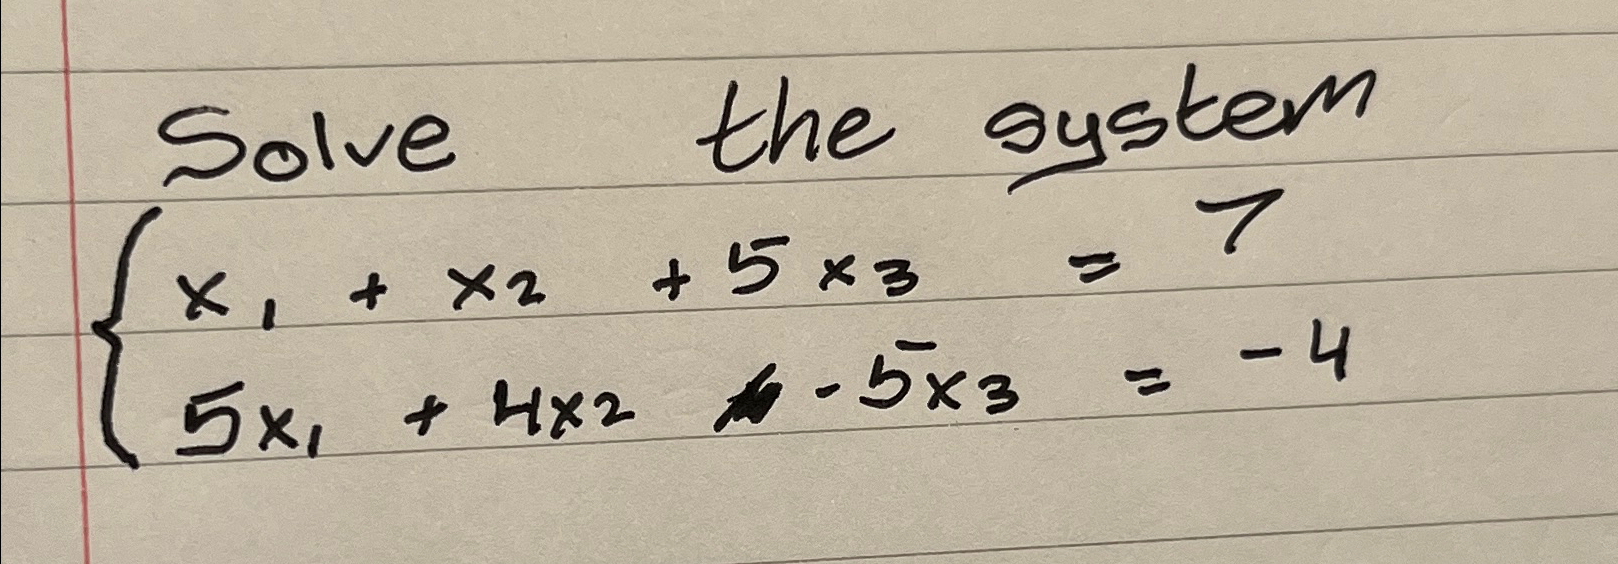 Solve the system
x₁ + x2 + 5x3 = 7
5x₁ + 4x2 - 5x3 = -4